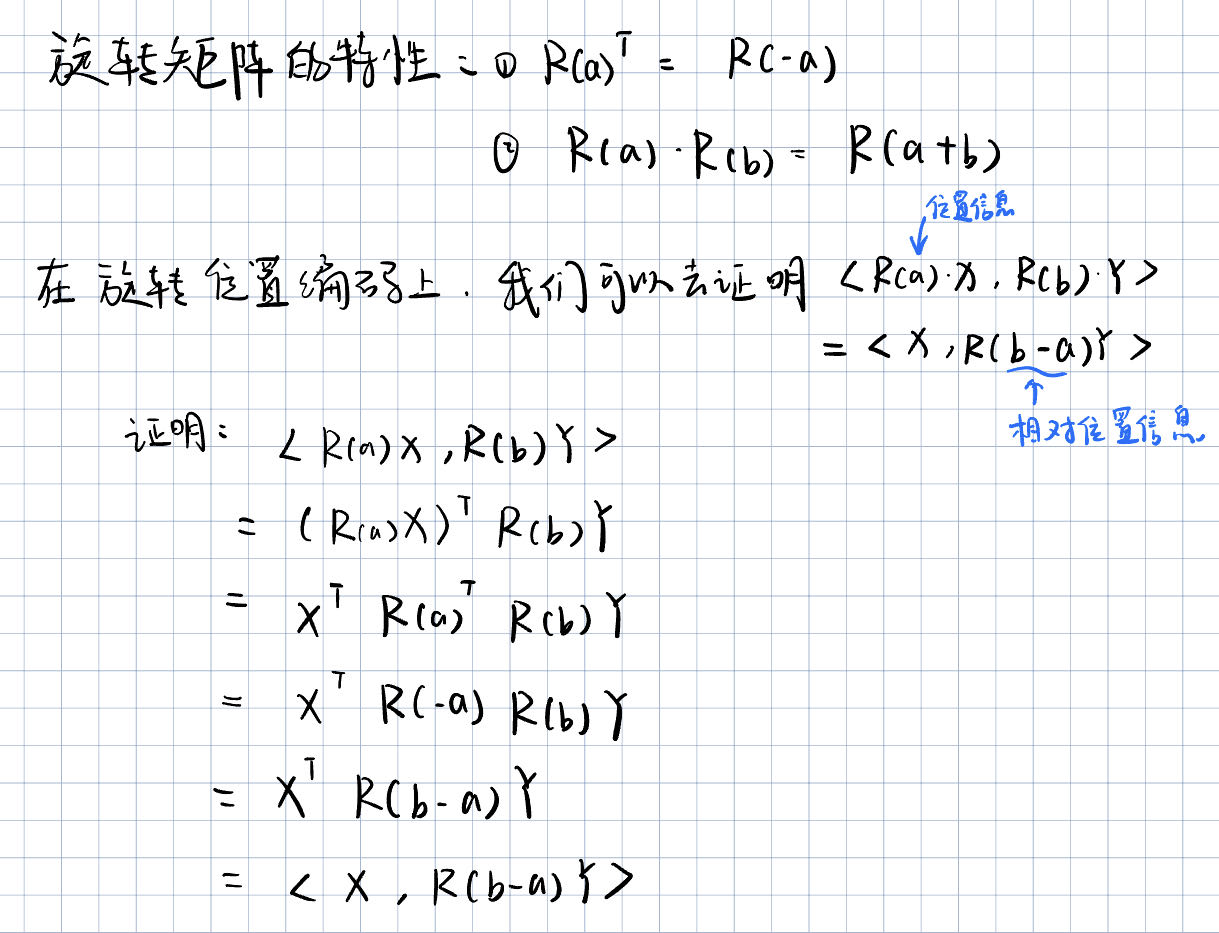 旋转矩阵的特性: ① R(a)ᵀ = R(-a)
② R(a)·R(b) = R(a+b)
位置信息
在旋转位置编码上. 我们可以去证明 <R(a)·X, R(b)·Y>
= <X, R(b-a)Y>
相对位置信息.
证明: <R(a)X, R(b)Y>
= (R(a)X)ᵀ R(b)Y
= Xᵀ R(a)ᵀ R(b)Y
= Xᵀ R(-a) R(b)Y
= Xᵀ R(b-a)Y
= <X, R(b-a)Y>